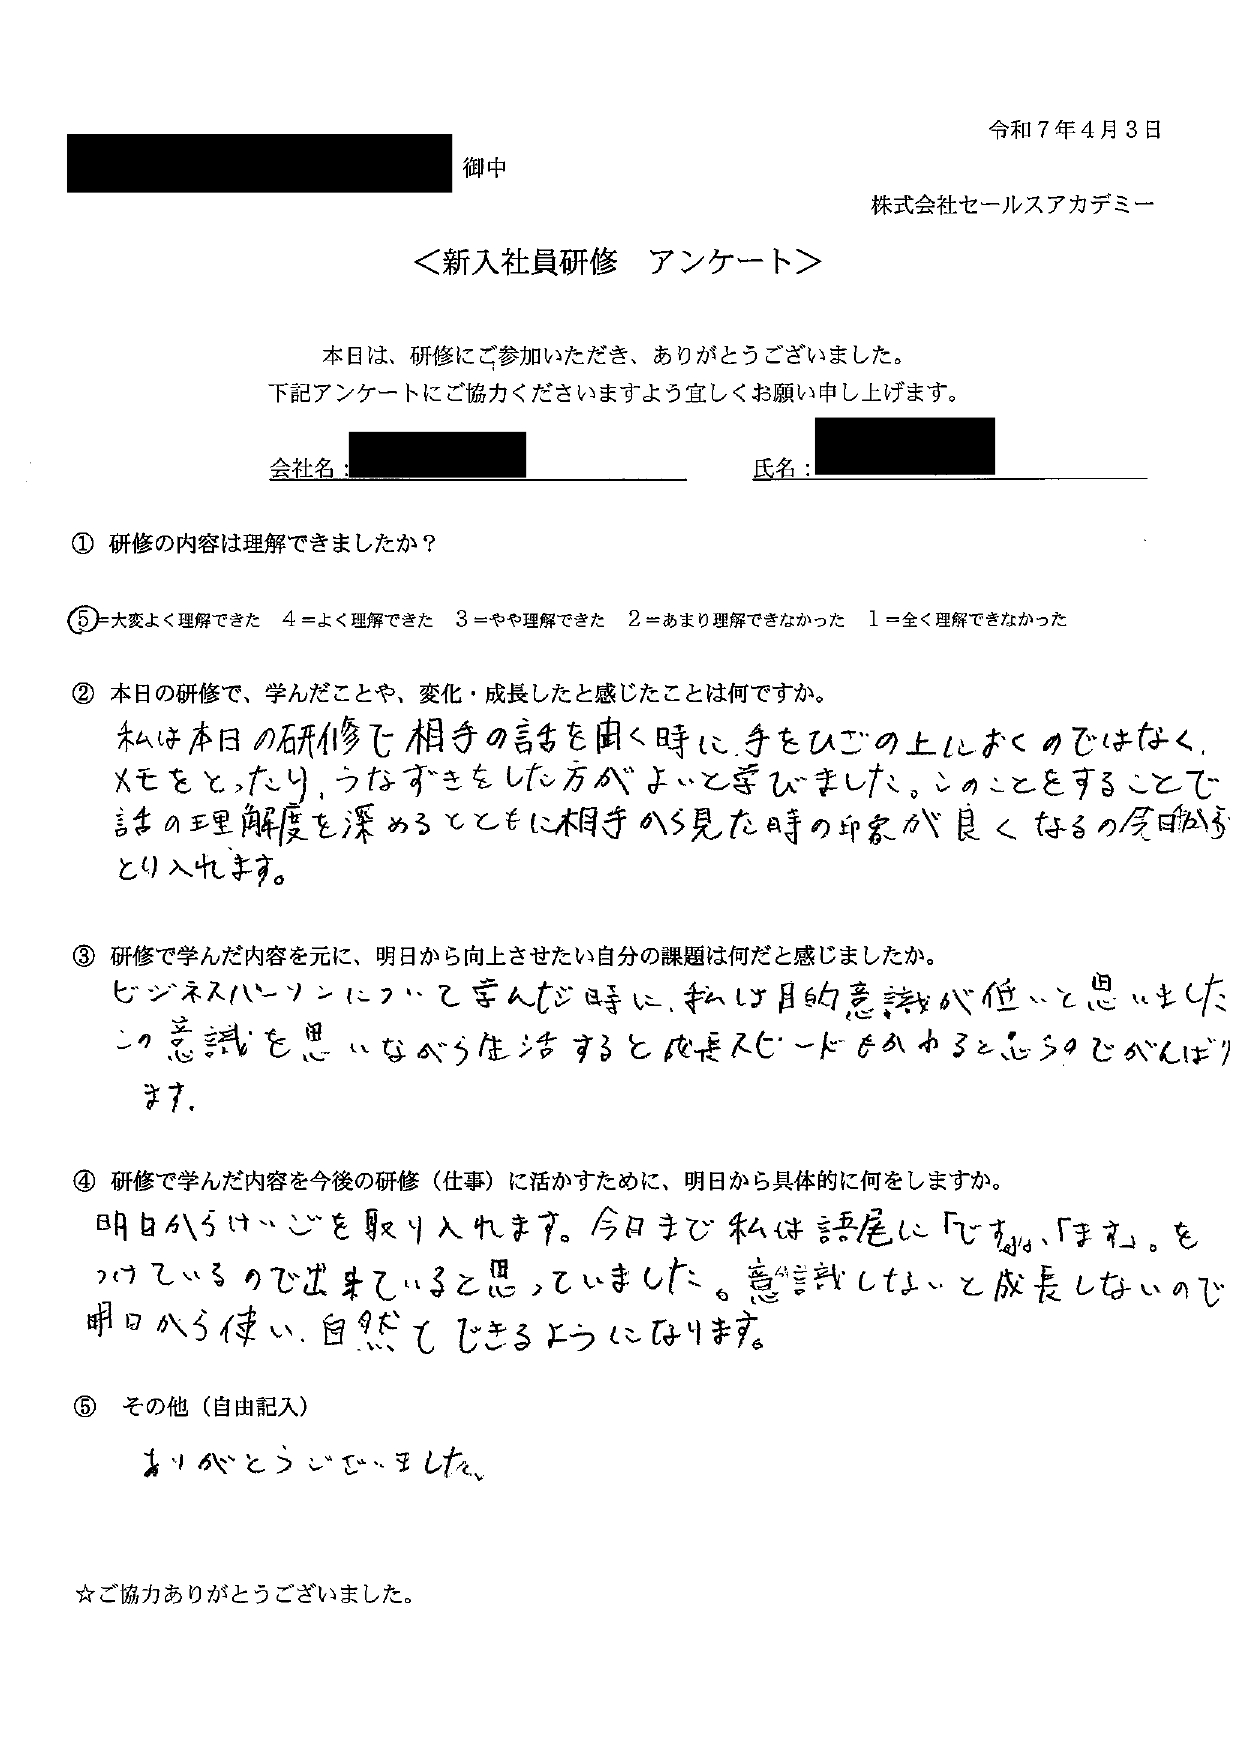 令和７年４月３日
御中
株式会社セールスアカデミー
＜新入社員研修　アンケート＞
本日は、研修にご参加いただき、ありがとうございました。
下記アンケートにご協力くださいますよう宜しくお願い申し上げます。
会社名：　氏名：
① 研修の内容は理解できましたか？
5＝大変よく理解できた　４＝よく理解できた　３＝やや理解できた　２＝あまり理解できなかった　１＝全く理解できなかった
② 本日の研修で、学んだことや、変化・成長したと感じたことは何ですか。
私は本日の研修で相手の話を聞く時に、手をひざの上におくのではなく、
メモをとったり、うなずきをした方がよいと学びました。このことをすることで
話の理解度を深めるとともに相手から見た時の印象が良くなるの
とり入れます。
③ 研修で学んだ内容を元に、明日から向上させたい自分の課題は何だと感じましたか。
ビジネスパーソンについて学んだ時に、私は目的意識が低いと思いました
この意識を思いながら生活すると成長スピードもかわると思うのでがんばり
ます.
④ 研修で学んだ内容を今後の研修（仕事）に活かすために、明日から具体的に何をしますか。
明日からけいごを取り入れます。今日まで私は語尾に「です」、「ます」。を
つけているので出来ていると思っていました。意識しないと成長しないので
明日から使い、自然とできるようになります。
⑤　その他（自由記入）
ありがとうございました、
☆ご協力ありがとうございました。